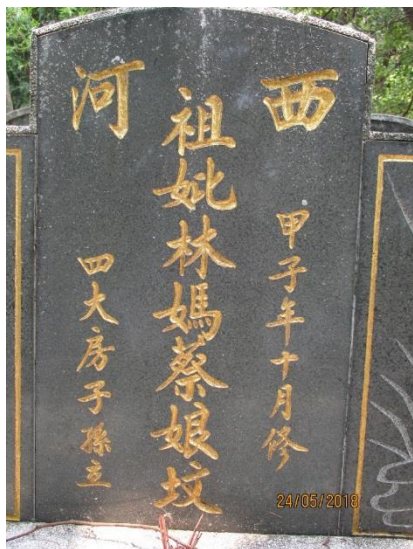 西河
甲子年十月修
祖妣林媽蔡娘坟
四大房子孫立
24/05/2018